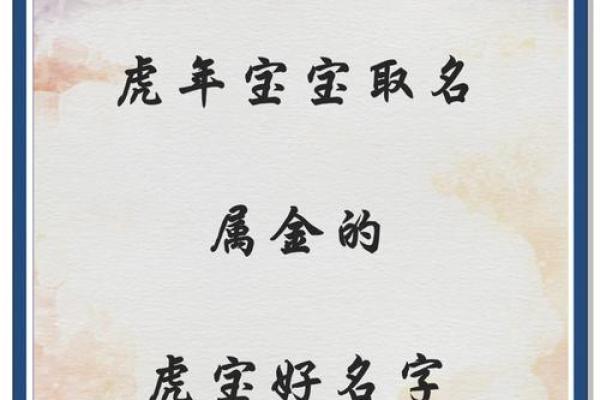 虎年宝宝取名
属金的
虎宝好名字